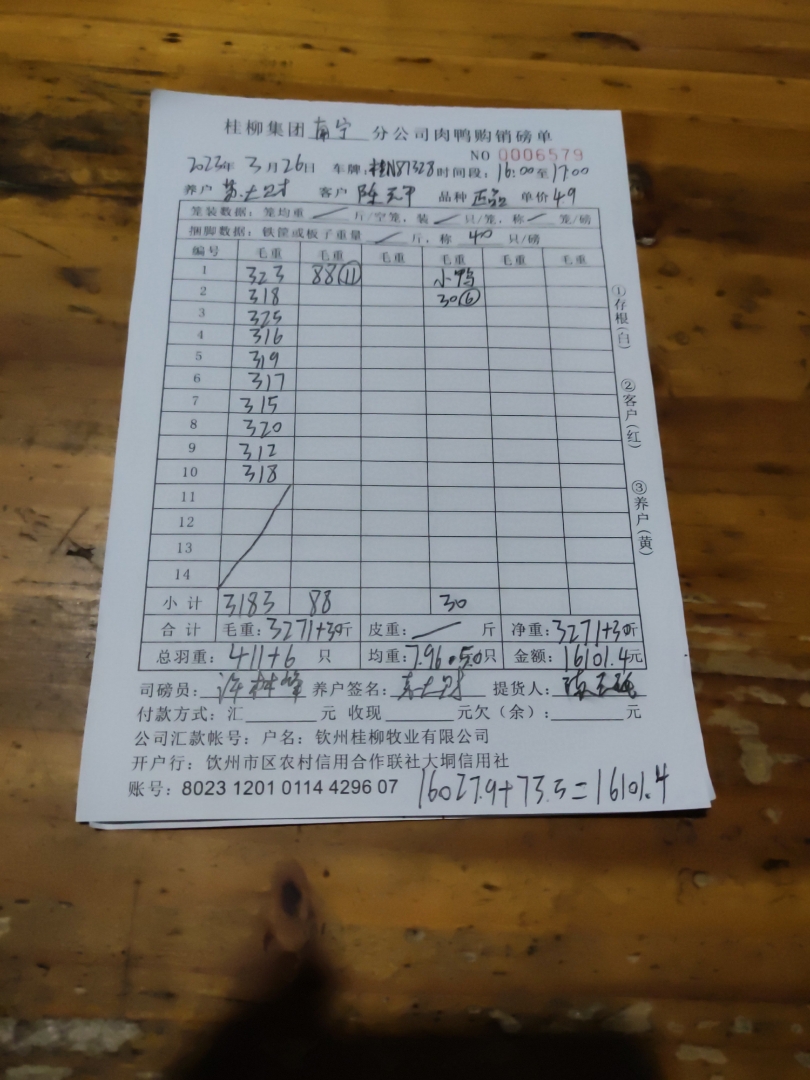 桂柳集团 南宁 分公司肉鸭购销磅单
NO 0006579
2023年 3月26日 车牌:桂N87328 时间段:16:00至17:00
养户 客户 品种 正品 单价 4.9
笼装数据:笼均重 / 斤/空笼,装 / 只/笼,称 / 笼/磅
捆脚数据:铁筐或板子重量 / 斤,称 40 只/磅
编号 毛重 毛重 毛重 毛重 毛重 毛重
1 323 88(11) 小鸭
2 318 30(6)
3 325
4 316
5 319
6 317
7 315
8 320
9 312
10 318
11
12
13
14
小计 3183 88 30
合计 毛重:3271+30斤 皮重:/ 斤 净重:3271+30斤
总羽重:411+6 只 均重:7.96 5.0只 金额:16101.4元
司磅员: 养户签名: 提货人:
付款方式:汇 元 收现 元欠(余): 元
公司汇款帐号:户名:钦州桂柳牧业有限公司
开户行:钦州市区农村信用合作联社大垌信用社
账号:8023 1201 0114 4296 07
16027.9+73.5=16101.4
①存根(白)
②客户(红)
③养户(黄)